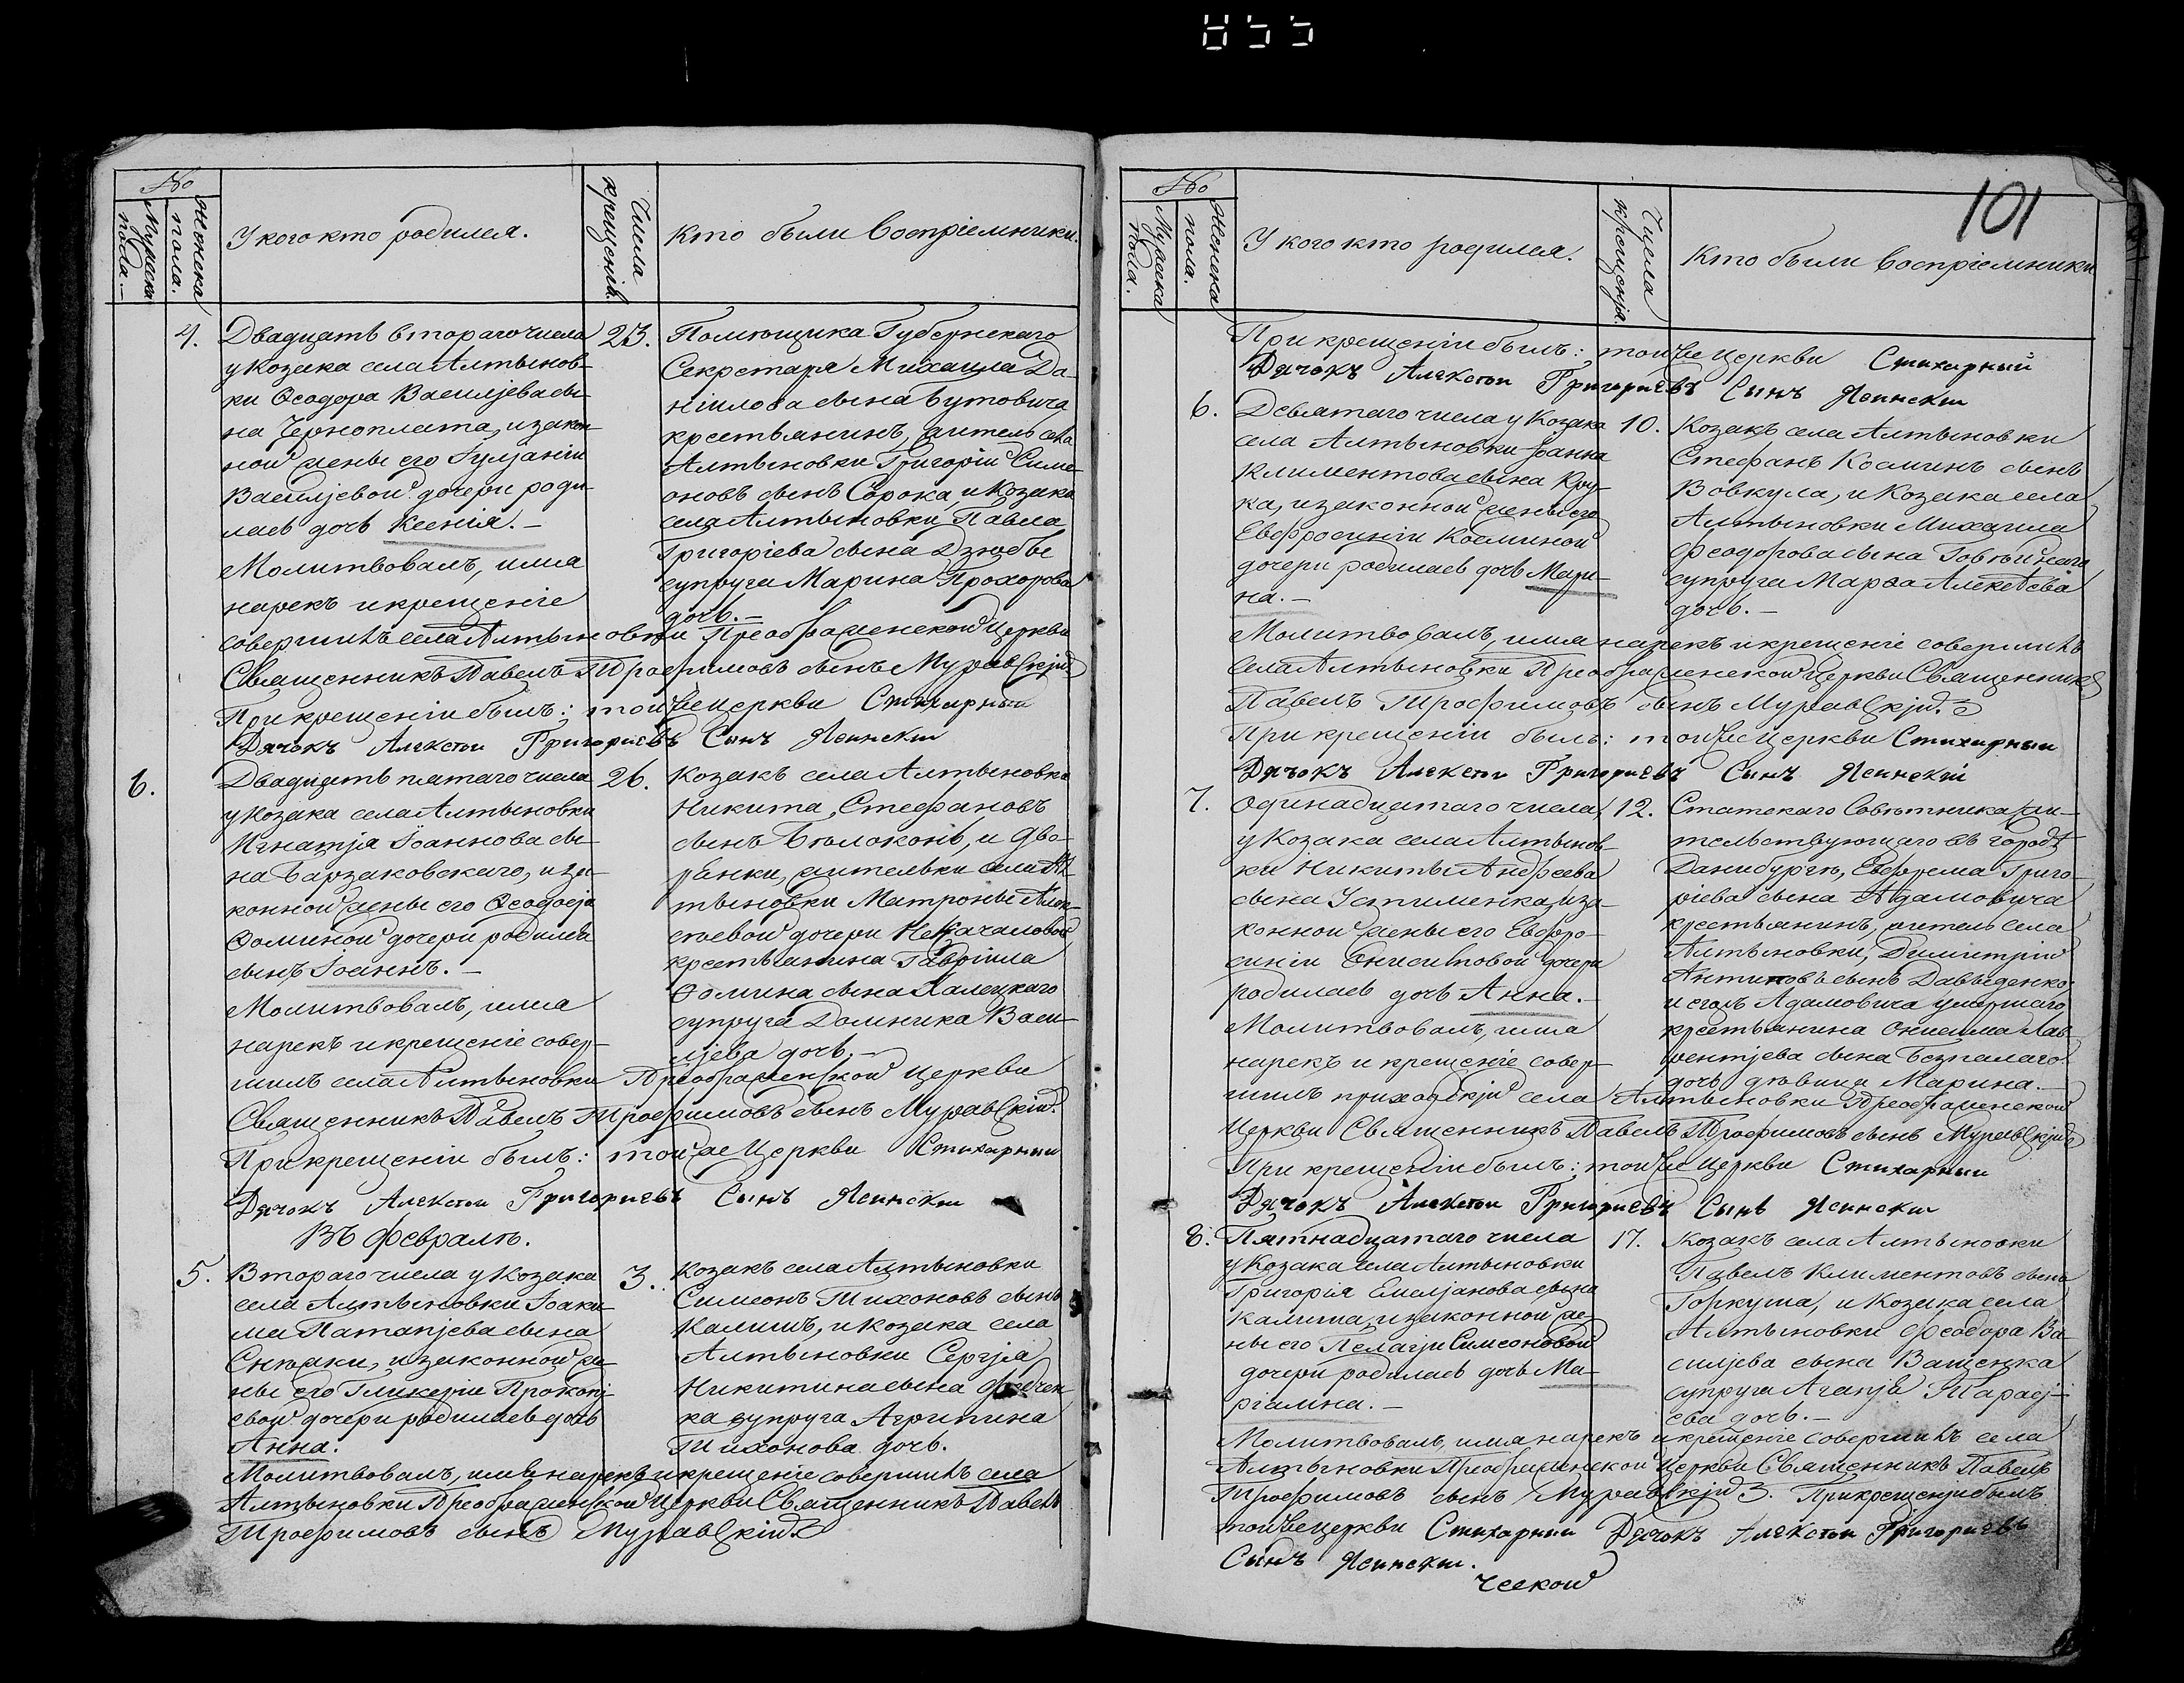 855
№
Мужеска пола.
Женска пола.
У кого кто родился.
Числа крещенія.
Кто были Воспріемники.
4.
Двадцать втораго числа
у Козака села Алтынов-
ки Ѳеодора Васильева сы-
на Черноплата, и закон-
ной жены его Іуліаніи
Васильевой дочери роди-
лась дочь Ксенія.-
Молитвовалъ, имя
нарекъ и крещеніе
23.
Помѣщика Губернскаго
Секретаря Михаила Да-
ніилова сына Бутовича
крестьянинъ, житель села
Алтыновки Григорій Симе-
оновъ сынъ Сорока, и Козака
села Алтыновки Павла
Григоріева сына Дзюбы
супруга Марина Прохорова
дочь.-
совершилъ села Алтыновки Преображенской Церкви
Священникъ Павелъ Трофимовъ сынъ Муравскій
При крещеніи былъ: той же церкви Стихарный
Дячокъ Алексѣи Григориевъ Сынъ Ясински
6.
Двадцать пятаго числа
у Козака села Алтыновки
Игнатія Іоаннова сы-
на Барзаковскаго, и за-
конной жены его Ѳеодосіи
Ѳоминой дочери родился
сынъ Іоаннъ.-
Молитвовалъ, имя
нарекъ и крещеніе совер-
26.
Козакъ села Алтыновки
Никита Стефановъ
сынъ Бѣлоконь, и дво-
рянки, жительки села Ал-
тыновки Матроны Алек-
сѣевой дочери
крестьянина Гавріила
Ѳомина сына Халецкаго
супруга Домника Васи-
льева дочь.-
шилъ села Алтыновки Преображенской Церкви
Священникъ Павелъ Трофимовъ сынъ Муравскій.
При крещеніи былъ: той же Церкви Стихарныи
Дячокъ Алексѣи Григориевъ Сынъ Ясински
Въ Февралѣ.
5.
Втораго числа у Козака
села Алтыновки Іоаки-
ма Патапіева сына
Снѣжки, и законной же-
ны его Гликеріи Прокопі-
евой дочери родилась дочь
Анна.
3.
Козакъ села Алтыновки
Симеонъ Тихоновъ сынъ
Калишъ, и Козака села
Алтыновки Сергія
Никитина сына
ка супруга Агрипина
Тихонова дочь.
Молитвовалъ, имя нарекъ и крещеніе совершилъ села
Алтыновки Преображенской Церкви Священникъ Павелъ
Трофимовъ сынъ Муравскій
101
№
Мужеска пола.
Женска пола.
У кого кто родился.
Числа крещенія.
Кто были Воспріемники
При крещеніи былъ: той же Церкви Стихарный
Дячокъ Алексѣи Григориевъ Сынъ Ясински
6.
Девятаго числа у Козака
села Алтыновки Іоанна
Климентова сына Кру-
ка, и законной жены его
Евфросиніи Косминой
дочери родилась дочь Мари-
на.-
10.
Козакъ села Алтыновки
Стефанъ Косминъ сынъ
Вовкула, и Козака села
Алтыновки Михаила
Феодорова сына
супруга Марѳа Алексѣева
дочь.-
Молитвовалъ, имя нарекъ и крещеніе совершилъ
села Алтыновки Преображенской Церкви Священникъ
Павелъ Трофимовъ сынъ Муравскій.
При крещеніи былъ: той же Церкви Стихарныи
Дячокъ Алексѣи Григориевъ Сынъ Ясинскій
7.
Одинадцатаго числа
у Козака села Алтынов-
ки Никиты Андреева
сына Устименка, и за-
конной жены его Евфро-
синіи Онисимовой дочери
родилась дочь Анна.-
Молитвовалъ, имя
нарекъ и крещеніе совер-
12.
Статскаго Совѣтника жи-
тельствующаго въ городѣ
Данибургѣ, Евфрема Григо-
ріева сына Адамовича
крестьянинъ, житель села
Алтыновки, Димитрій
Антиповъ сынъ Давыденко
и его жъ Адамовича умершаго
крестьянина Онисима Лав-
рентіева сына Безпалаго
дочь дѣвица Марина.-
шилъ приходскій села Алтыновки Преображенской
Церкви Священникъ Павелъ Трофимовъ сынъ Муравскій
При крещеніи былъ: той же Церкви Стихарныи
Дячокъ Алексѣи Григориевъ Сынъ Ясински
8.
Пятнадцатаго числа
у Козака села Алтыновки
Григорія Емеліанова сына
Калиша, и законной же-
ны его Пелагіи Симеоновой
дочери родилась дочь Ма-
ріамна.-
17.
Козакъ села Алтыновки
Павелъ Климентовъ сынъ
Горкуша, и Козака села
Алтыновки Феодора Ва-
силіева сына Ващенка
супруга Агапія Тарасі-
ева дочь.-
Молитвовалъ, имя нарекъ и крещеніе совершилъ села
Алтыновки Преображенской Церкви Священникъ Павелъ
Трофимовъ сынъ Муравскій. При крещеніи былъ
той же церкви Стихарныи Дячокъ Алексѣи Григориевъ
Сынъ Ясински.
ческой